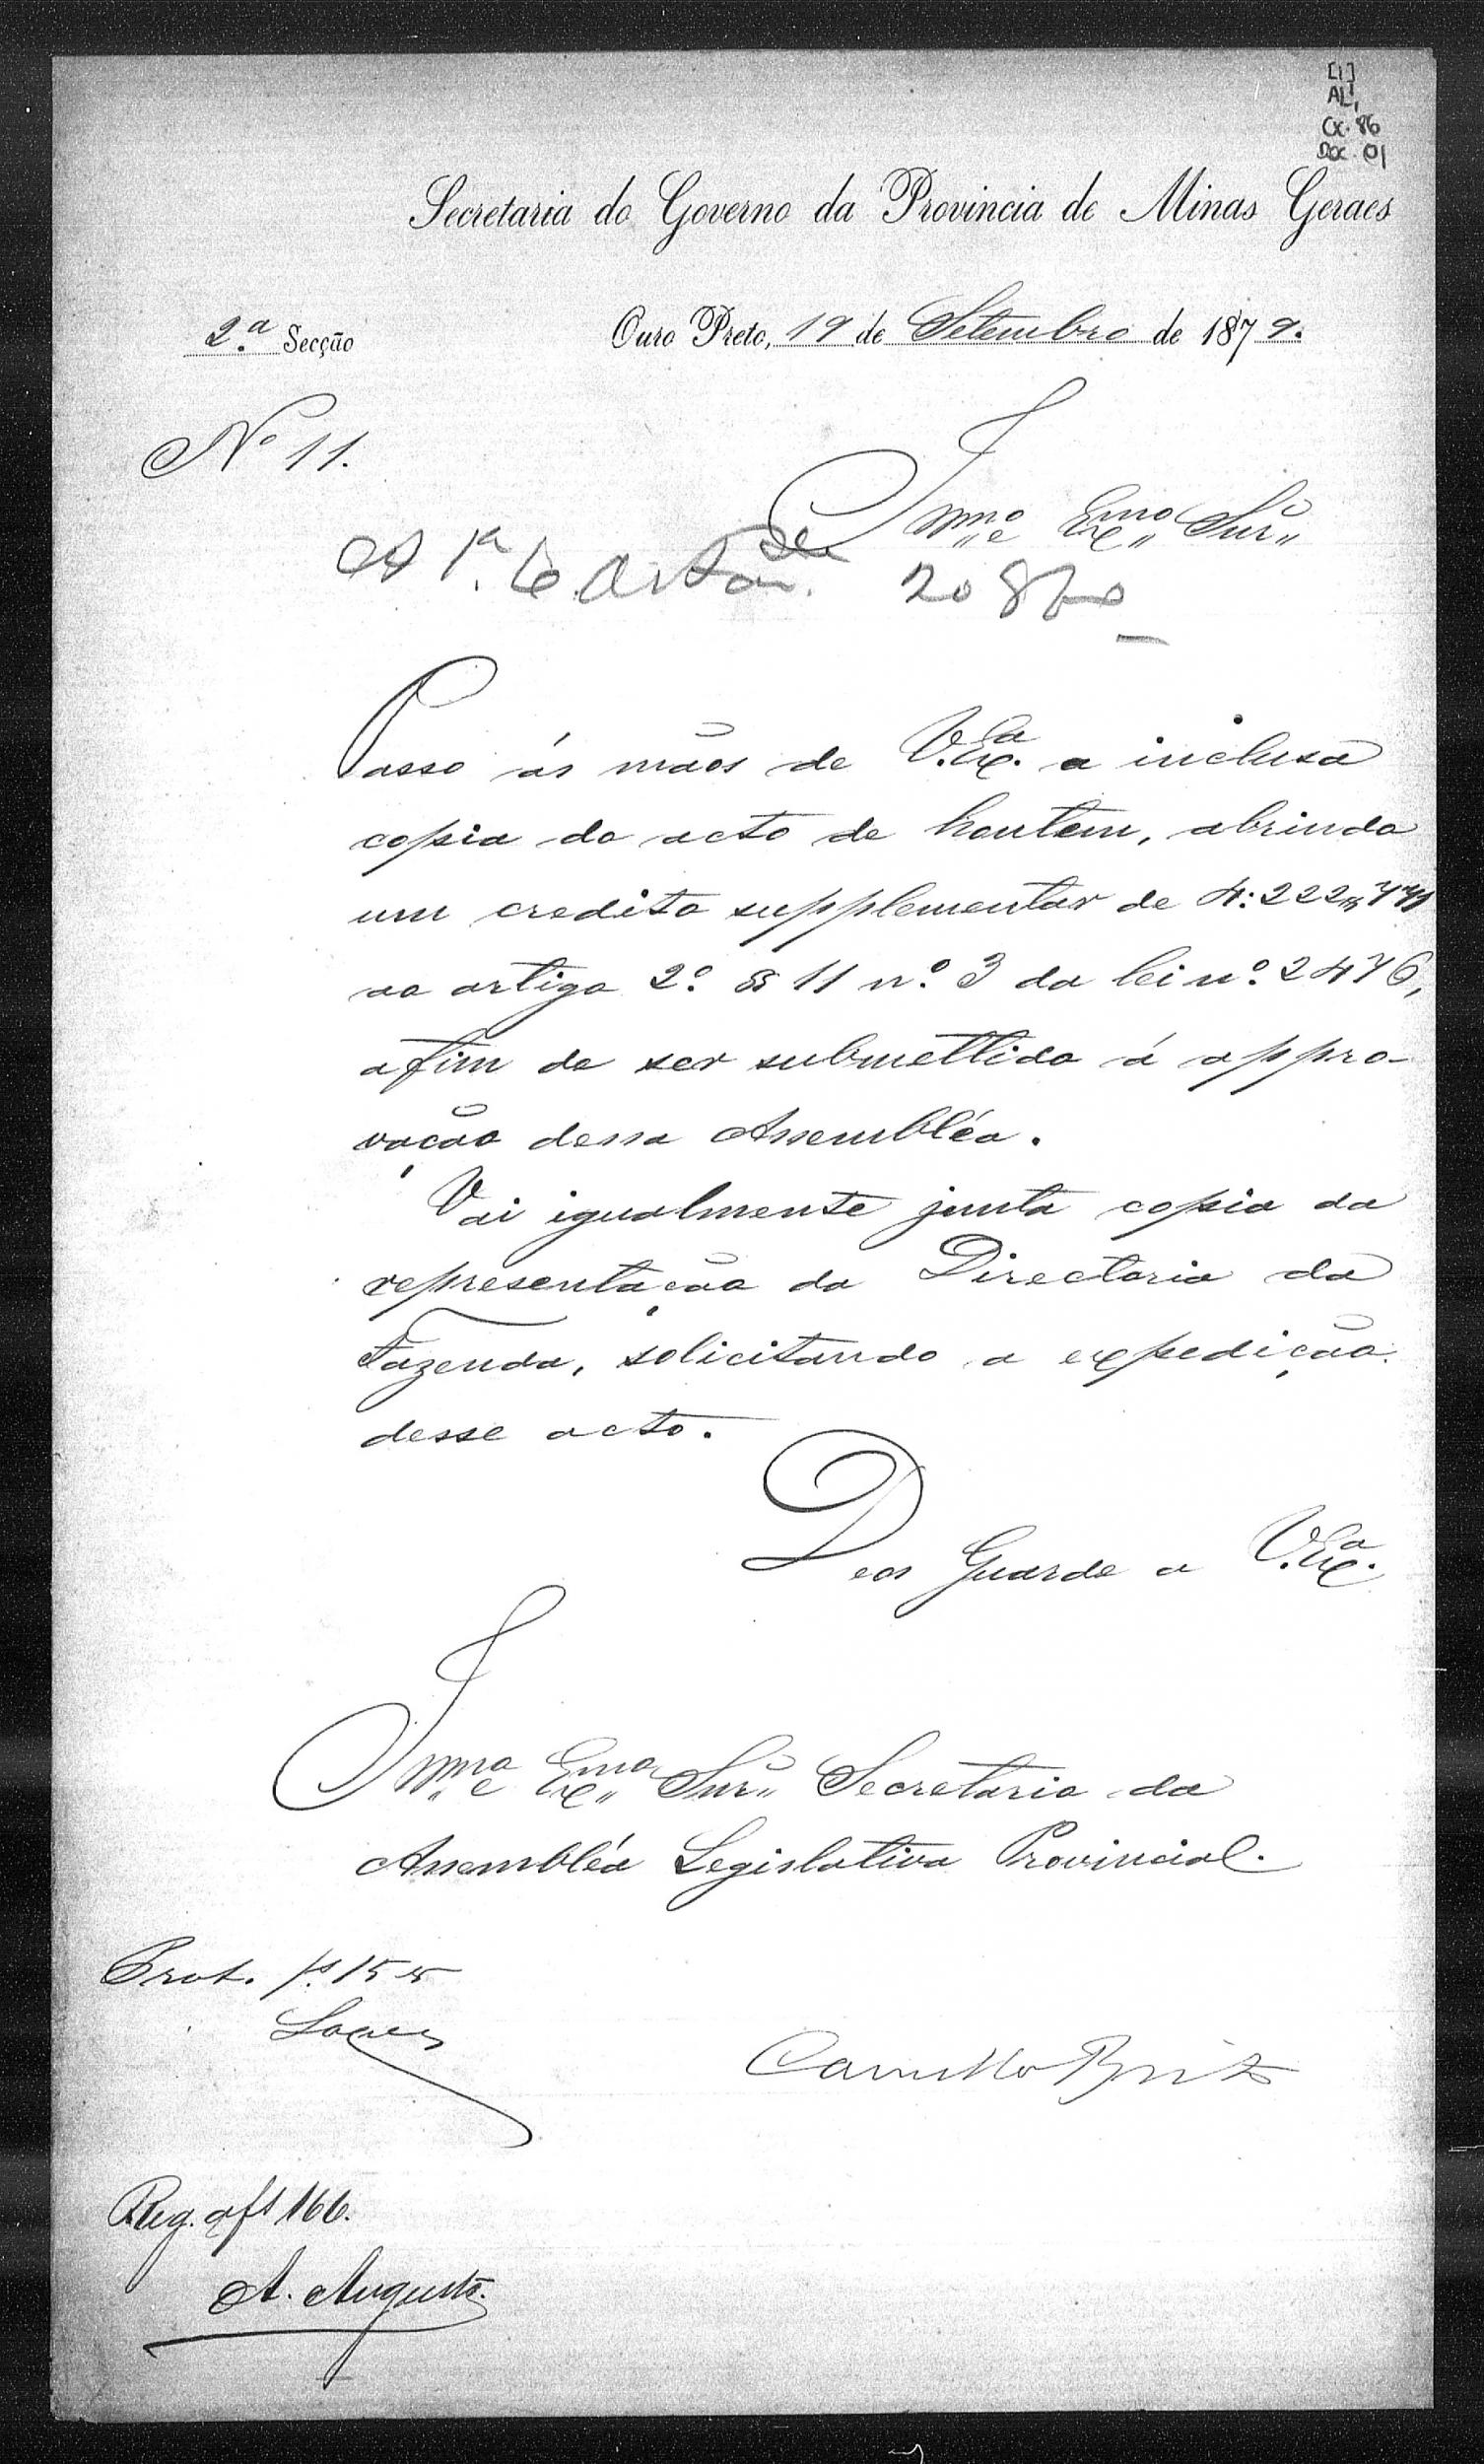 [1]
AL,
Cx. 86
Doc. 01
Secretaria do Governo da Provincia de Minas Geraes
2.ª Secção
Ouro Preto, 19 de Setembro de 1879.
Nº 11.
Illmo e Exmo Snr.
A 1ª
20 Sbro
Passo ás mãos de V. Exª. a inclusa
copia do acto de hontem, abrindo
um credito supplementar de 4:222$771
ao artigo 2º § 11 nº 3 da lei nº 2476,
afim de ser submettido á appro-
vação dessa Assembléa.
Vai igualmente junta copia da
representação da Directoria da
Fazenda, solicitando a expedição
desse acto.
Deos Guarde a V. Exª.
Illmo e Exmo Snr. Secretario da
Assembléa Legislativa Provincial.
Prot. fs. 155
Camillo Brito
Reg. a fs 166.
A. Augusto.